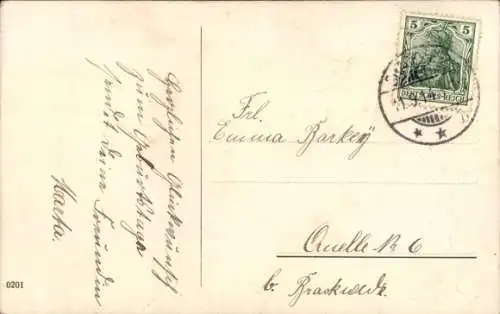 Herzlichen Glückwunsch
zum Geburtstage
sendet Deine Freundin
Maeta.
0201
5
DEUTSCHES REICH
Frl.
Emma Barkey
Quelle N 6
b. Brackwede.